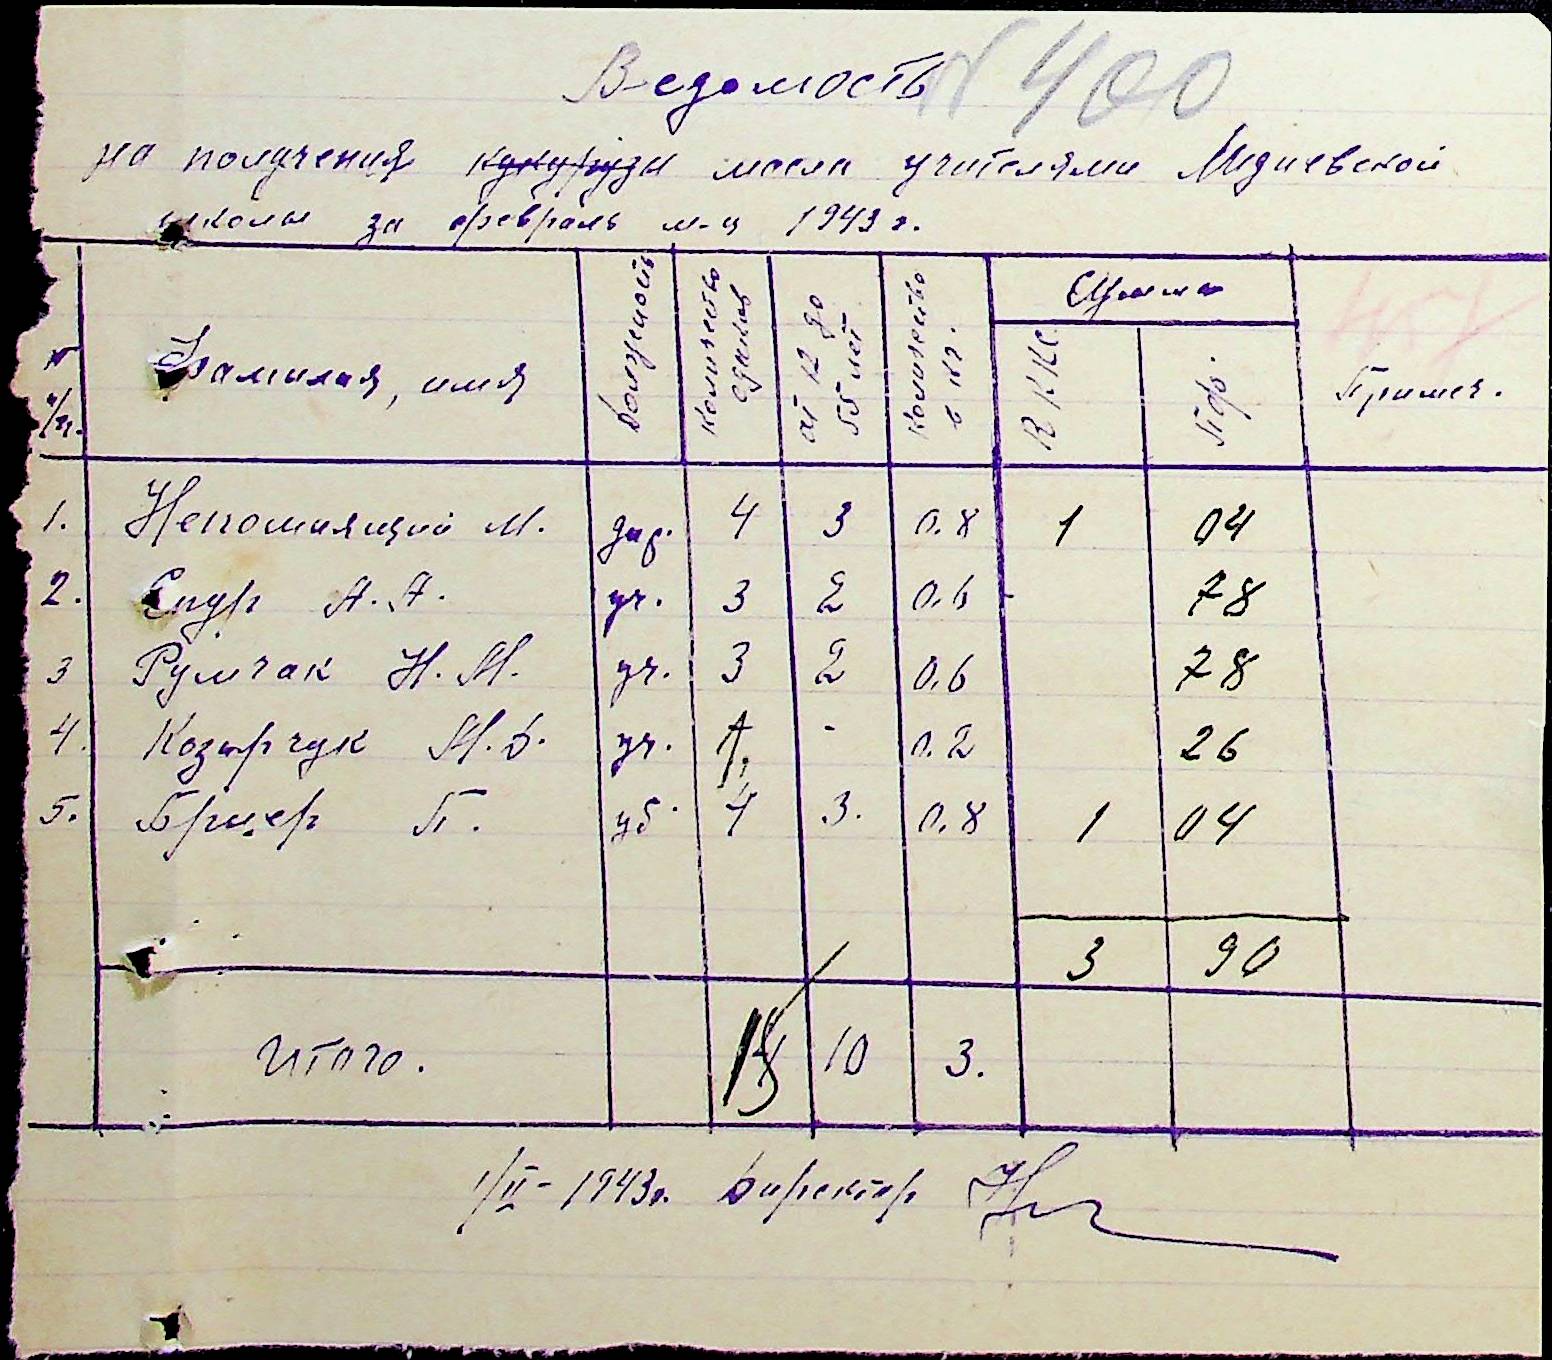 Ведомость № 400
на получения кукурузы масла учителями Мидиевской
школы за февраль м-ц 1943 г.
№ п/п. Фамилия, имя Должность Количество едоков от 12 до 55 лет Количество в кг. Сумма Примеч.
RККС. Пф.
1. Непомнящий М. дир. 4 3 0.8 1 04
2. А.А. уч. 3 2 0.6 - 78
3 Румчак Н.М. уч. 3 2 0.6 78
4. Козырчук М.Д. уч. 1, - 0.2 26
5. Т. уб. 4 3. 0.8 1 04
3 90
Итого. 15 10 3.
1/II - 1943г. Директор